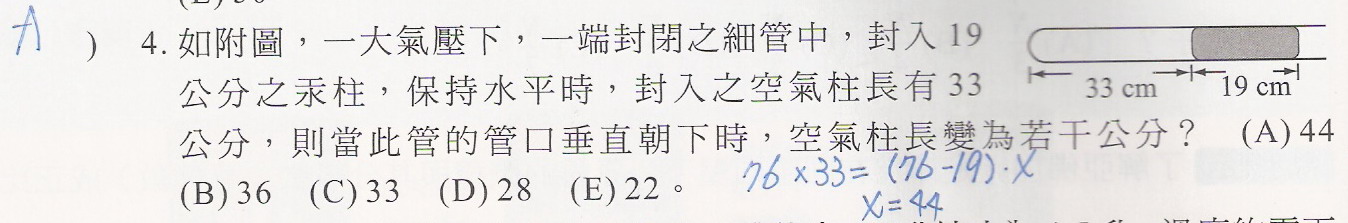 A ) 4. 如附圖，一大氣壓下，一端封閉之細管中，封入 19
公分之汞柱，保持水平時，封入之空氣柱長有 33
33 cm 19 cm
公分，則當此管的管口垂直朝下時，空氣柱長變為若干公分？ (A) 44
(B) 36 (C) 33 (D) 28 (E) 22。
76 × 33 = (76-19)·X
X = 44